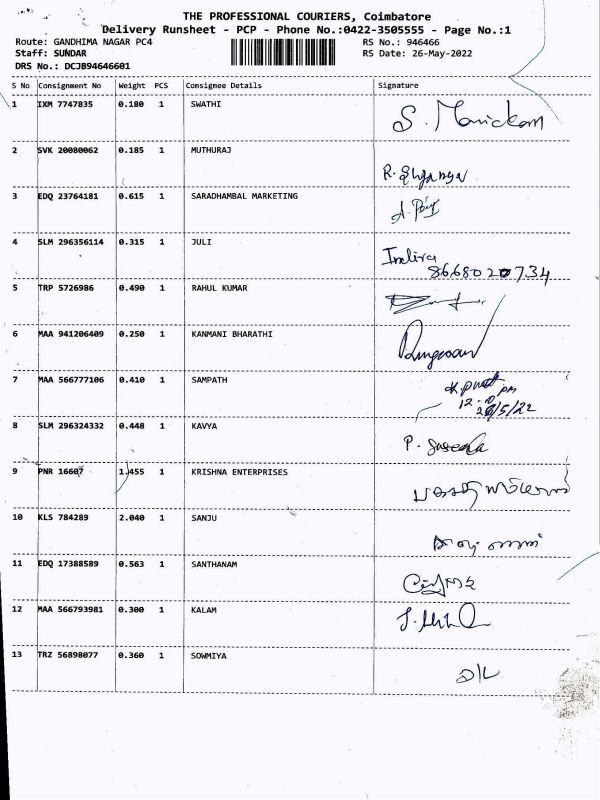 THE PROFESSIONAL COURIERS, Coimbatore
Delivery Runsheet - PCP - Phone No.:0422-3505555 - Page No.:1
Route: GANDHIMA NAGAR PC4 RS No.: 946466
Staff: SUNDAR RS Date: 26-May-2022
DRS No.: DCJB94646601
S No Consignment No Weight PCS Consignee Details Signature
1 IXM 7747835 0.180 1 SWATHI S. Manickam
2 SVK 20080062 0.185 1 MUTHURAJ
3 EDQ 23764181 0.615 1 SARADHAMBAL MARKETING
4 SLM 296356114 0.315 1 JULI Indira
8668020734
5 TRP 5726986 0.490 1 RAHUL KUMAR
6 MAA 941206409 0.250 1 KANMANI BHARATHI
7 MAA 566777106 0.410 1 SAMPATH
26/5/22
8 SLM 296324332 0.448 1 KAVYA
9 PNR 16607 1.455 1 KRISHNA ENTERPRISES
10 KLS 784289 2.040 1 SANJU
11 EDQ 17388589 0.563 1 SANTHANAM
12 MAA 566793981 0.300 1 KALAM
13 TRZ 56898077 0.360 1 SOWMIYA